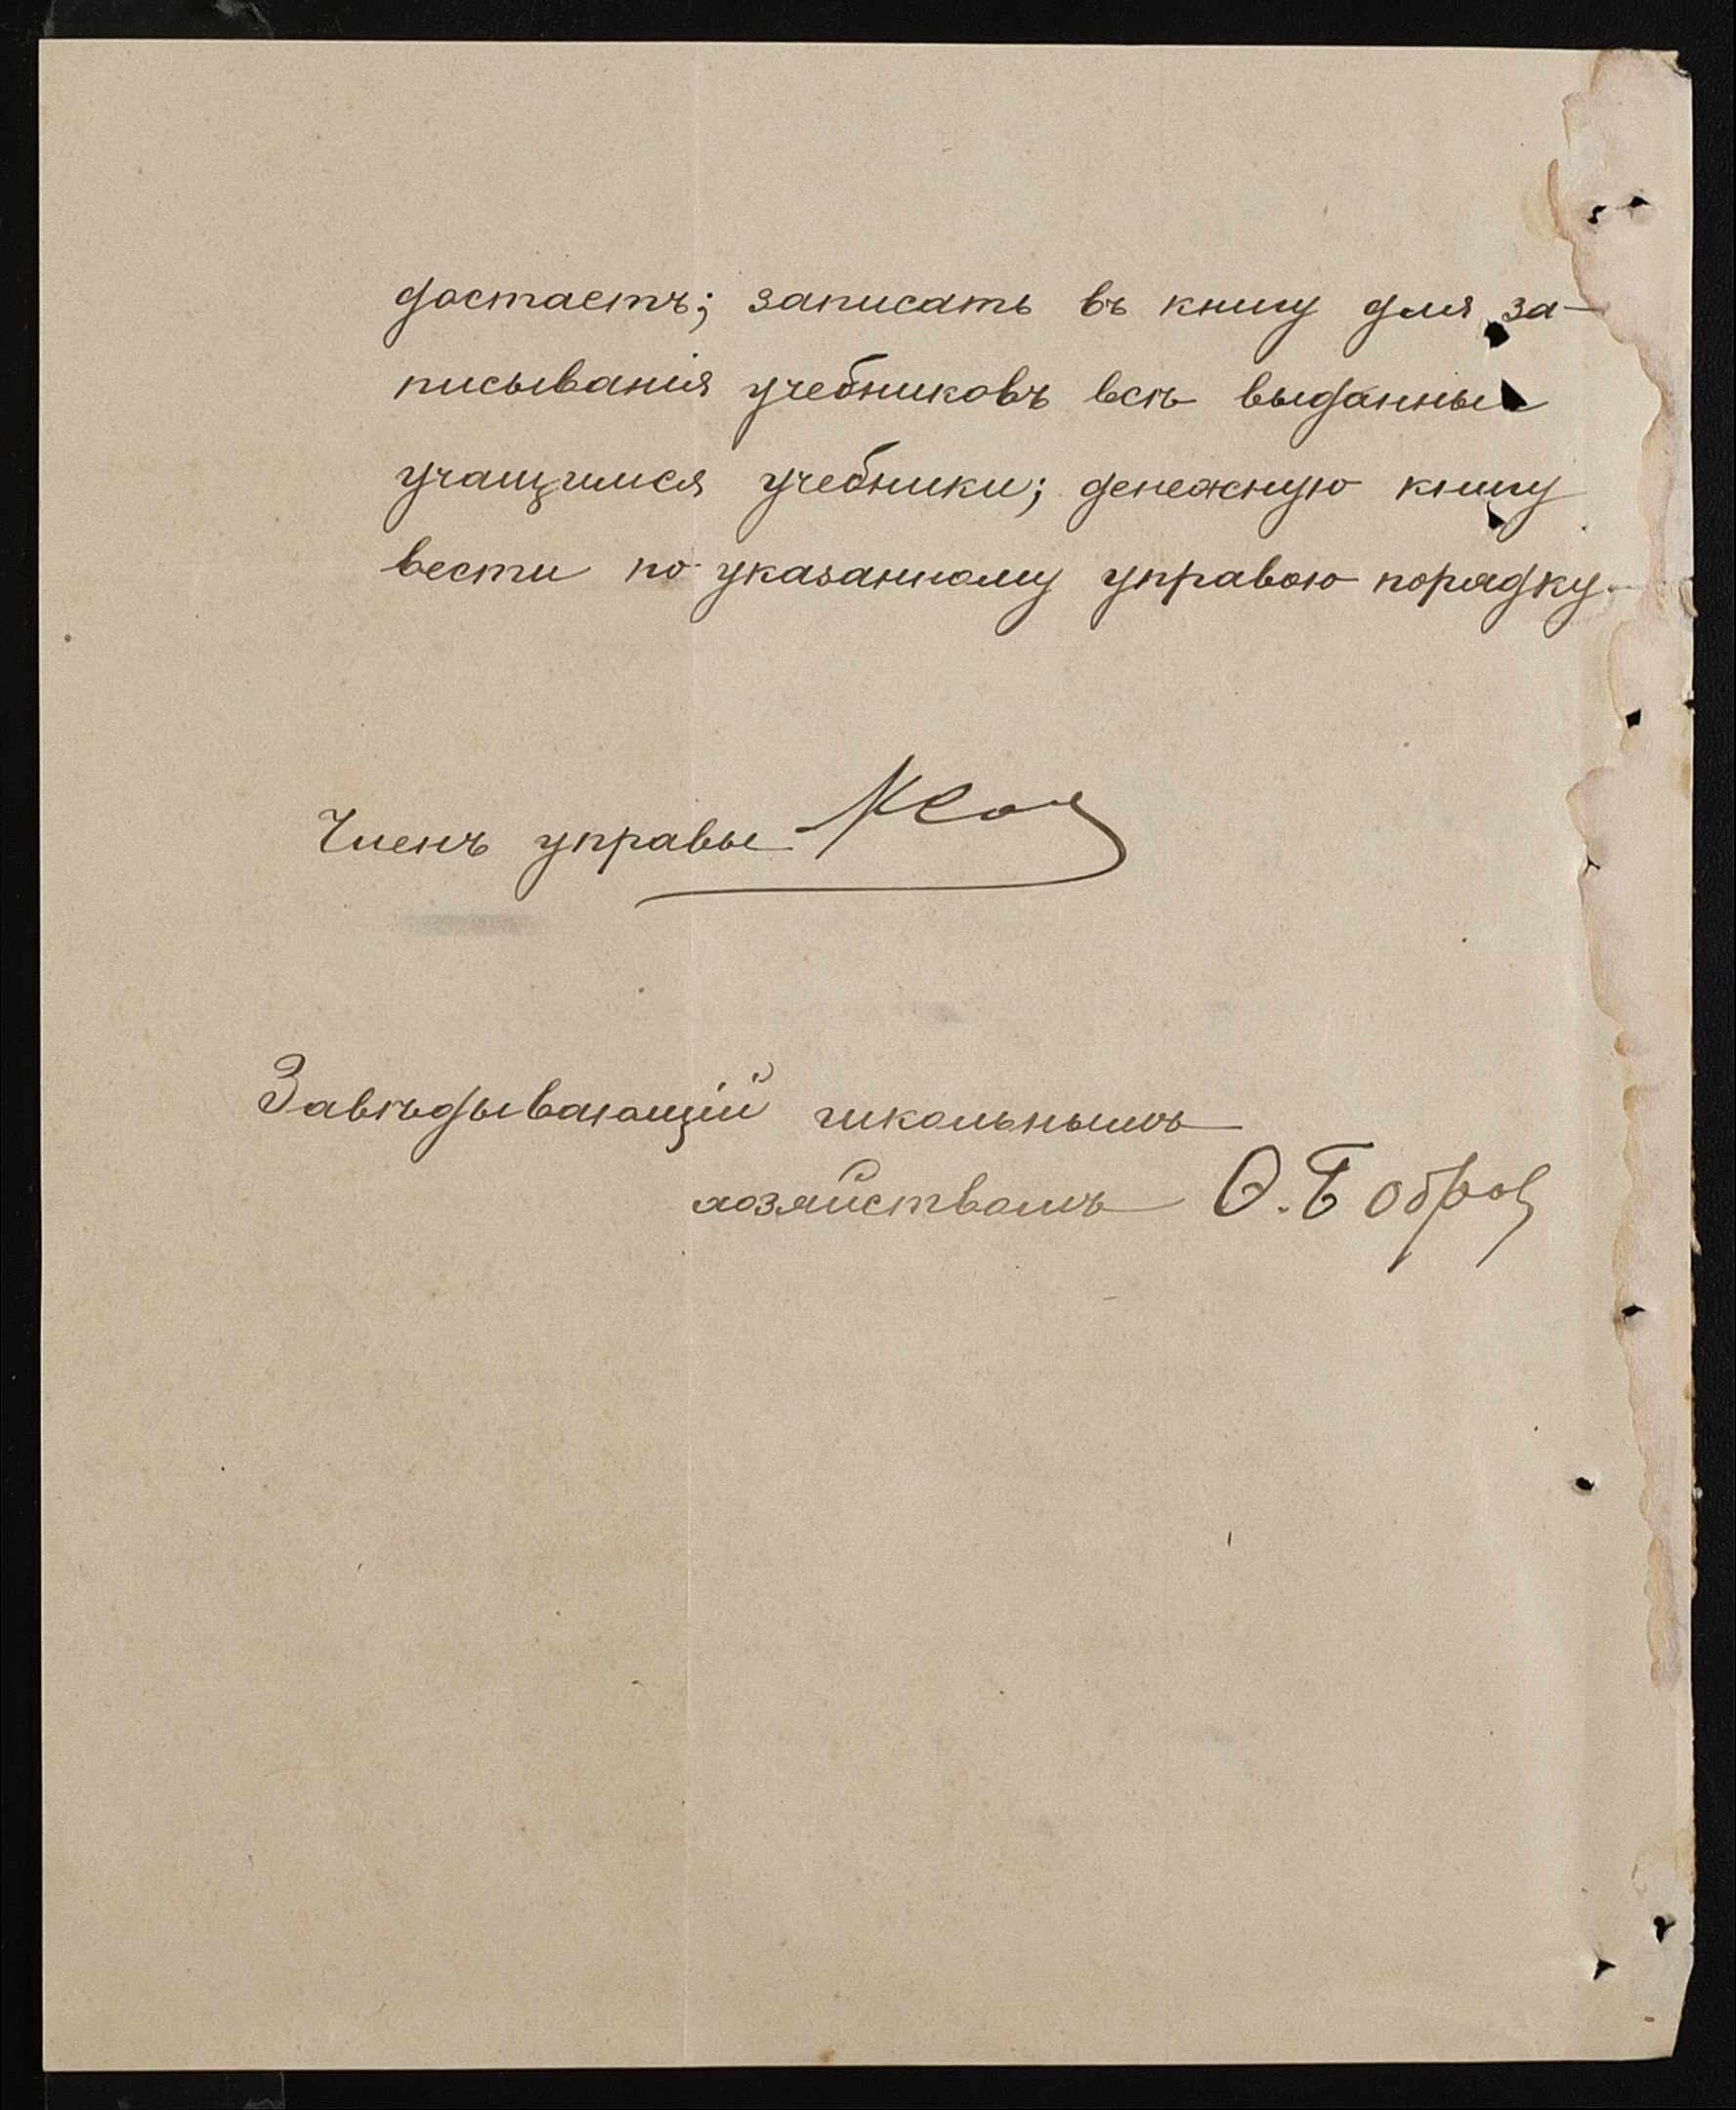 достаетъ; записать въ книгу для за-
писыванія учебниковъ всѣ выданные
учащимся учебники; денежную книгу
вести по указанному управою порядку.
Членъ управы
Завѣдывающій школьнымъ
хозяйствомъ О. Бобров